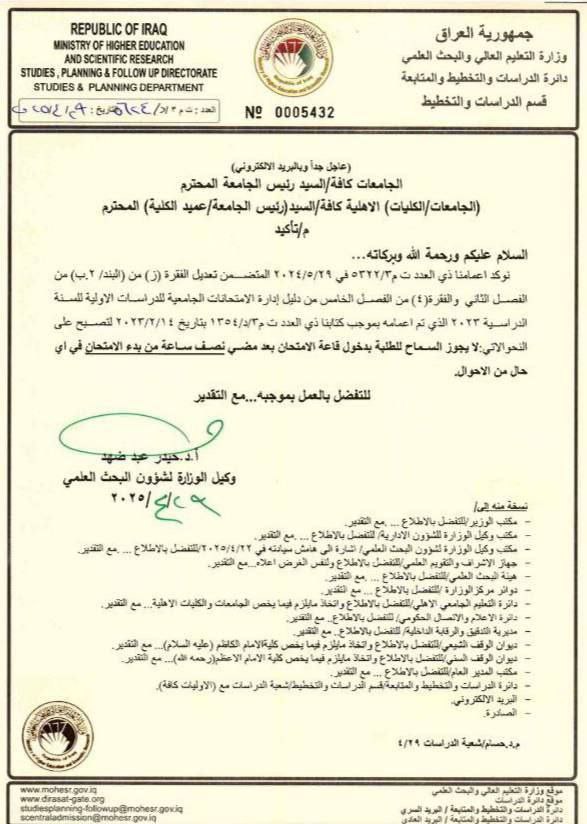 REPUBLIC OF IRAQ
MINISTRY OF HIGHER EDUCATION
AND SCIENTIFIC RESEARCH
STUDIES , PLANNING & FOLLOW UP DIRECTORATE
STUDIES & PLANNING DEPARTMENT
جمهورية العراق
وزارة التعليم العالي والبحث العلمي
دائرة الدراسات والتخطيط والمتابعة
قسم الدراسات والتخطيط
№ 0005432
العدد: ت م ٣/د/
(عاجل جداً وبالبريد الالكتروني)
الجامعات كافة/السيد رئيس الجامعة المحترم
(الجامعات/الكليات) الاهلية كافة/السيد(رئيس الجامعة/عميد الكلية) المحترم
م/تأكيد
السلام عليكم ورحمة الله وبركاته...
نوكد اعمامنا ذي العدد ت م٥٣٢٢/٣ في ٢٠٢٤/٥/٢٩ المتضمن تعديل الفقرة (ز) من (البند/ ٢.ب) من
الفصل الثاني والفقرة(٤) من الفصل الخامس من دليل إدارة الامتحانات الجامعية للدراسات الاولية للسنة
الدراسية ٢٠٢٣ الذي تم اعمامه بموجب كتابنا ذي العدد ت م٣/د/١٣٥٤ بتاريخ ٢٠٢٣/٢/١٤ لتصبح على
النحوالاتي:لا يجوز السماح للطلبة بدخول قاعة الامتحان بعد مضي نصف ساعة من بدء الامتحان في اي
حال من الاحوال.
للتفضل بالعمل بموجبه...مع التقدير
أ.د.حيدر عبد ضهد
وكيل الوزارة لشؤون البحث العلمي
٢٠٢٥/٤/٢٩
نسخة منه إلى/
- مكتب الوزير/للتفضل بالاطلاع ... مع التقدير.
- مكتب وكيل الوزارة للشؤون الادارية/ للتفضل بالاطلاع ... مع التقدير.
- مكتب وكيل الوزارة لشؤون البحث العلمي/ اشارة الى هامش سيادته في ٢٠٢٥/٤/٢٢/للتفضل بالاطلاع ... مع التقدير.
- جهاز الاشراف والتقويم العلمي/للتفضل بالاطلاع ولنفس الغرض اعلاه...مع التقدير.
- هيئة البحث العلمي/للتفضل بالاطلاع ... مع التقدير.
- دوائر مركزالوزارة /للتفضل بالاطلاع ... مع التقدير.
- دائرة التعليم الجامعي الاهلي/للتفضل بالاطلاع واتخاذ مايلزم فيما يخص الجامعات والكليات الاهلية... مع التقدير.
- دائرة الاعلام والاتصال الحكومي/ للتفضل بالاطلاع.. مع التقدير.
- مديرية التدقيق والرقابة الداخلية/ للتفضل بالاطلاع.. مع التقدير.
- ديوان الوقف الشيعي/للتفضل بالاطلاع واتخاذ مايلزم فيما يخص كلية الامام الكاظم (عليه السلام)... مع التقدير.
- ديوان الوقف السني/للتفضل بالاطلاع واتخاذ مايلزم فيما يخص كلية الامام الاعظم(رحمه الله)... مع التقدير.
- مكتب المدير العام/للتفضل بالاطلاع ... مع التقدير.
- دائرة الدراسات والتخطيط والمتابعة/قسم الدراسات والتخطيط/شعبة الدراسات مع (الاوليات كافة).
- البريد الالكتروني.
- الصادرة.
م.د.حسام/شعبة الدراسات ٤/٢٩
www.mohesr.gov.iq
www.dirasat-gate.org
studiesplanning-followup@mohesr.gov.iq
scentraladmission@mohesr.gov.iq
موقع وزارة التعليم العالي والبحث العلمي
موقع دائرة الدراسات
دائرة الدراسات والتخطيط والمتابعة / البريد السري
دائرة الدراسات والتخطيط والمتابعة / البريد العادي